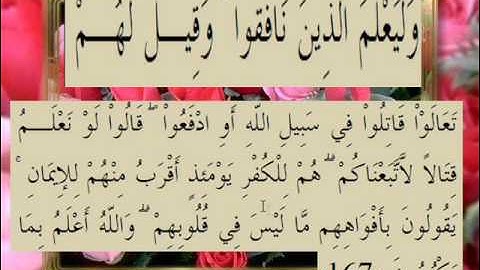 وَلْيَعْلَمَ الَّذِينَ نَافَقُواْ وَقِيلَ لَهُمْ
تَعَالَوْاْ قَاتِلُواْ فِي سَبِيلِ اللّهِ أَوِ ادْفَعُواْ ۖ قَالُواْ لَوْ نَعْلَمُ
قِتَالاً لاَّتَّبَعْنَاكُمْ ۗ هُمْ لِلْكُفْرِ يَوْمَئِذٍ أَقْرَبُ مِنْهُمْ لِلإِيمَانِ ۚ
يَقُولُونَ بِأَفْوَاهِهِم مَّا لَيْسَ فِي قُلُوبِهِمْ ۗ وَاللّهُ أَعْلَمُ بِمَا
167